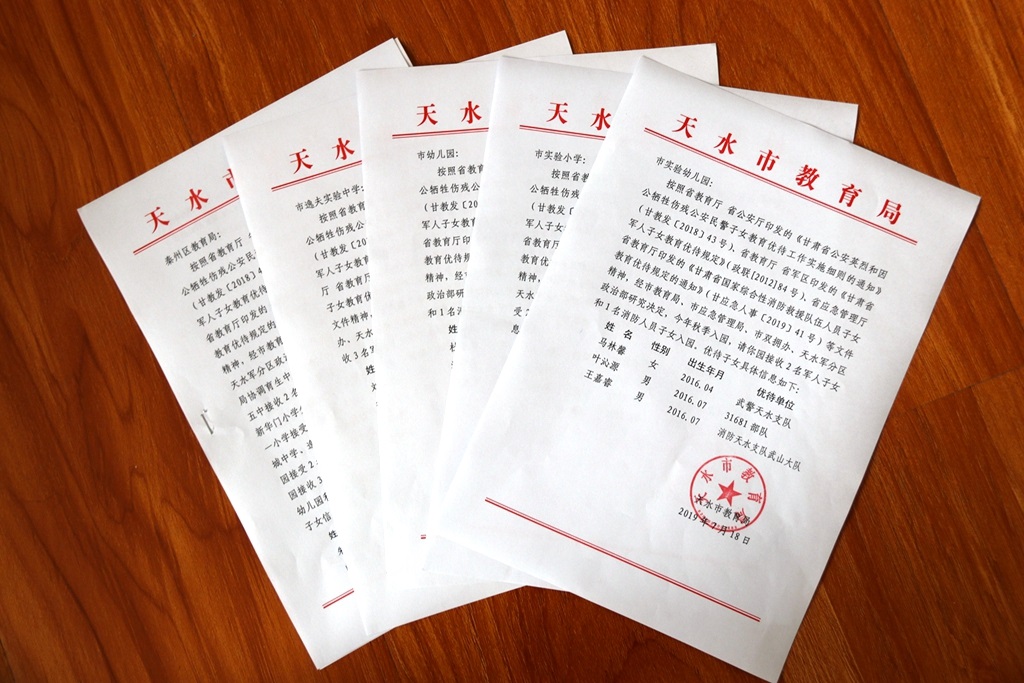 天水市
秦州区教育局:
按照省教育厅
公牺牲伤残公安民
(甘教发〔2018〕4
军人子女教育优待
省教育厅印发的
教育优待规定的
精神,经市教育
天水军分区政
局协调育生中
五中接收2名
新华门小学
一小学接受
城中学、
园接受2
园接收3
幼儿园
子女信
姓
天水
市逸夫实验中学:
按照省教育
公牺牲伤残公
(甘教发〔20
军人子女教育
厅 省教育厅
子女教育优
文件精神,
办、天水
收3名
姓
天水
市幼儿园:
按照省
公牺牲伤残公
(甘教发〔2
军人子女教
省教育厅印
教育优待规
精神,经市
政治部研
和1名
姓
天水
市实验小学:
按照省
公牺牲伤
(甘教发
军人子女
省教育
教育优
精神
天水
受2
息
天水市教育局
市实验幼儿园:
按照省教育厅 省公安厅印发的《甘肃省公安英烈和因
公牺牲伤残公安民警子女教育优待工作实施细则的通知》
(甘教发〔2018〕43号)、省教育厅 省军区印发的《甘肃省
军人子女教育优待规定》(政联[2012]84号)、省应急管理厅
省教育厅印发的《甘肃省国家综合性消防救援队伍人员子女
教育优待规定的通知》(甘应急人事〔2019〕41号)等文件
精神,经市教育局、市应急管理局、市双拥办、天水军分区
政治部研究决定,今年秋季入园,请你园接收2名军人子女
和1名消防人员子女入园,优待子女具体信息如下:
姓 名 性别 出生年月 优待单位
马林馨 女 2016.04 武警天水支队
叶沁源 男 2016.07 31681部队
王嘉睿 男 2016.07 消防天水支队武山大队
天水市教育局
2019年7月18日